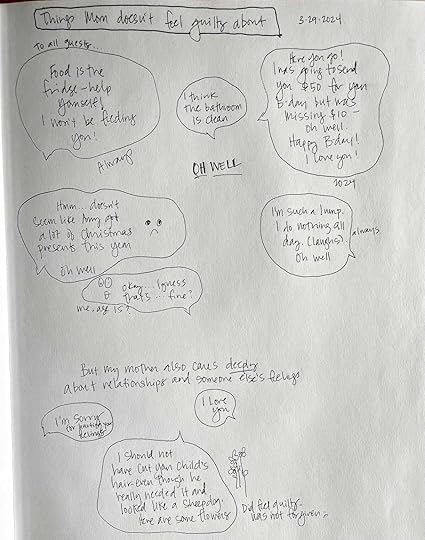 Things Mom doesn't feel guilty about
3.29.2024
To all guests...
Food is the
fridge - help
yourself!
I won't be feeding
you!
Always
I think
the bathroom
is clean
Here you go!
I was going to send
you $50 for your
B'day but was
missing $10 -
oh well.
Happy B'day!
I love you!
2024
OH WELL
Hmm... doesn't
seem like Amy got
a lot of Christmas
presents this year
oh well
okay... I guess
that's... fine?
me, age 15?
I'm such a lump.
I do nothing all
day. (laughs).
Oh well
always
But my mother also cares deeply
about relationships and someone else's feelings
I'm sorry
for hurting your
feelings
I love
you
I should not
have cut your child's
hair even though he
really needed it and
looked like a sheepdog.
Here are some flowers
Did feel guilty.
Was not forgiven.